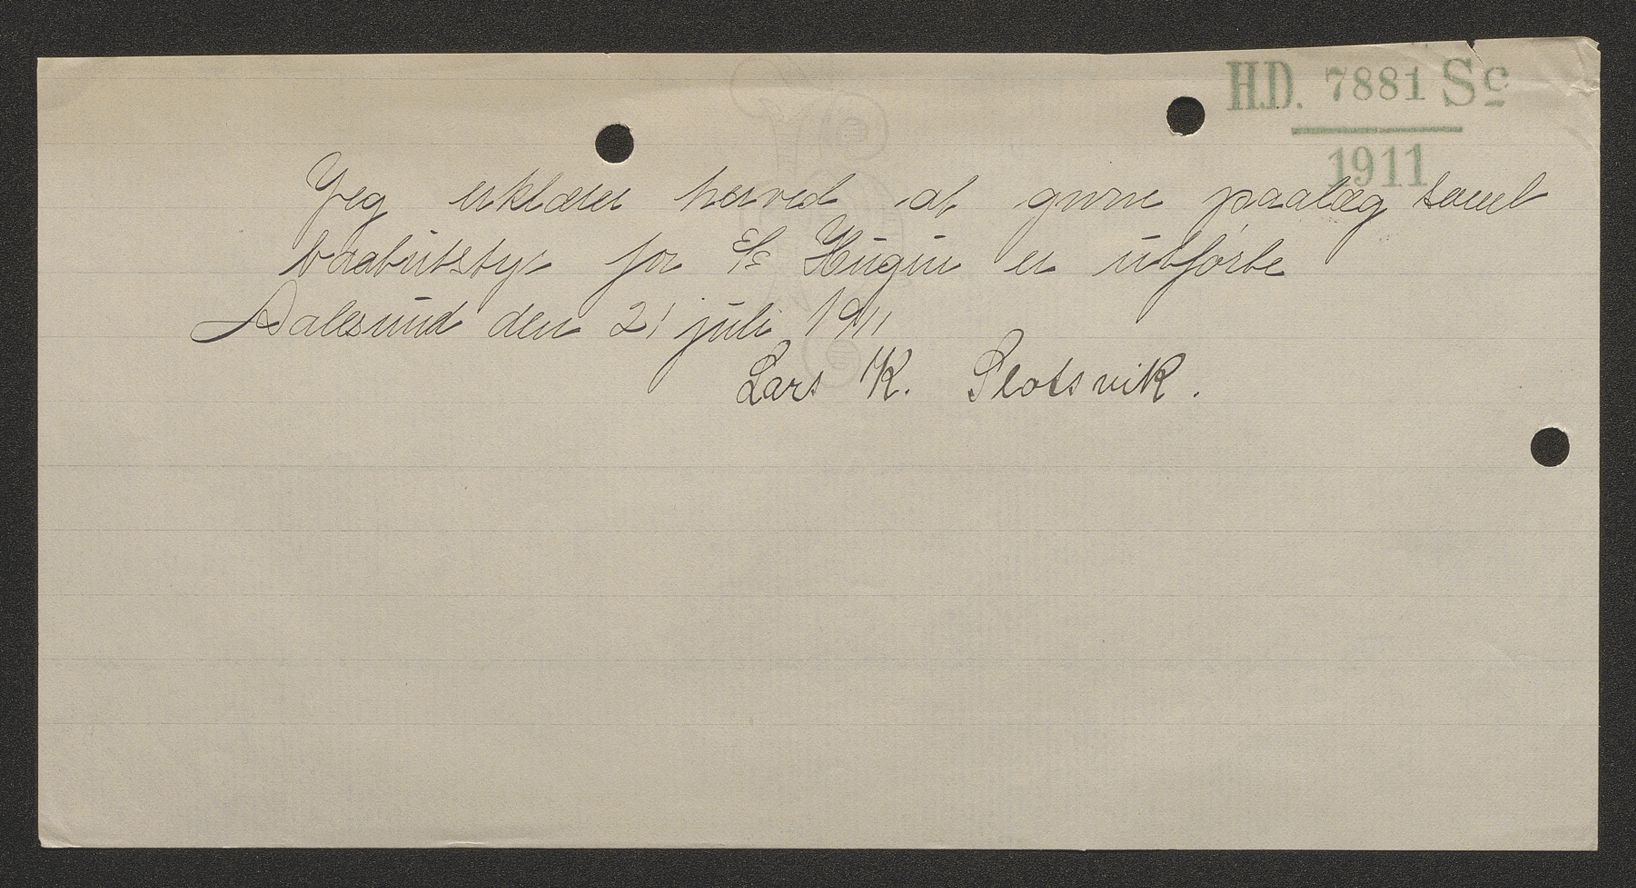 H.D. 7881 Sc
1911
Jeg erklærer herved at givne paalæg samt
baadutstyr for S/S Hugin er utførte
Aalesund den 21 juli 1911
Lars K. Slotsvik.